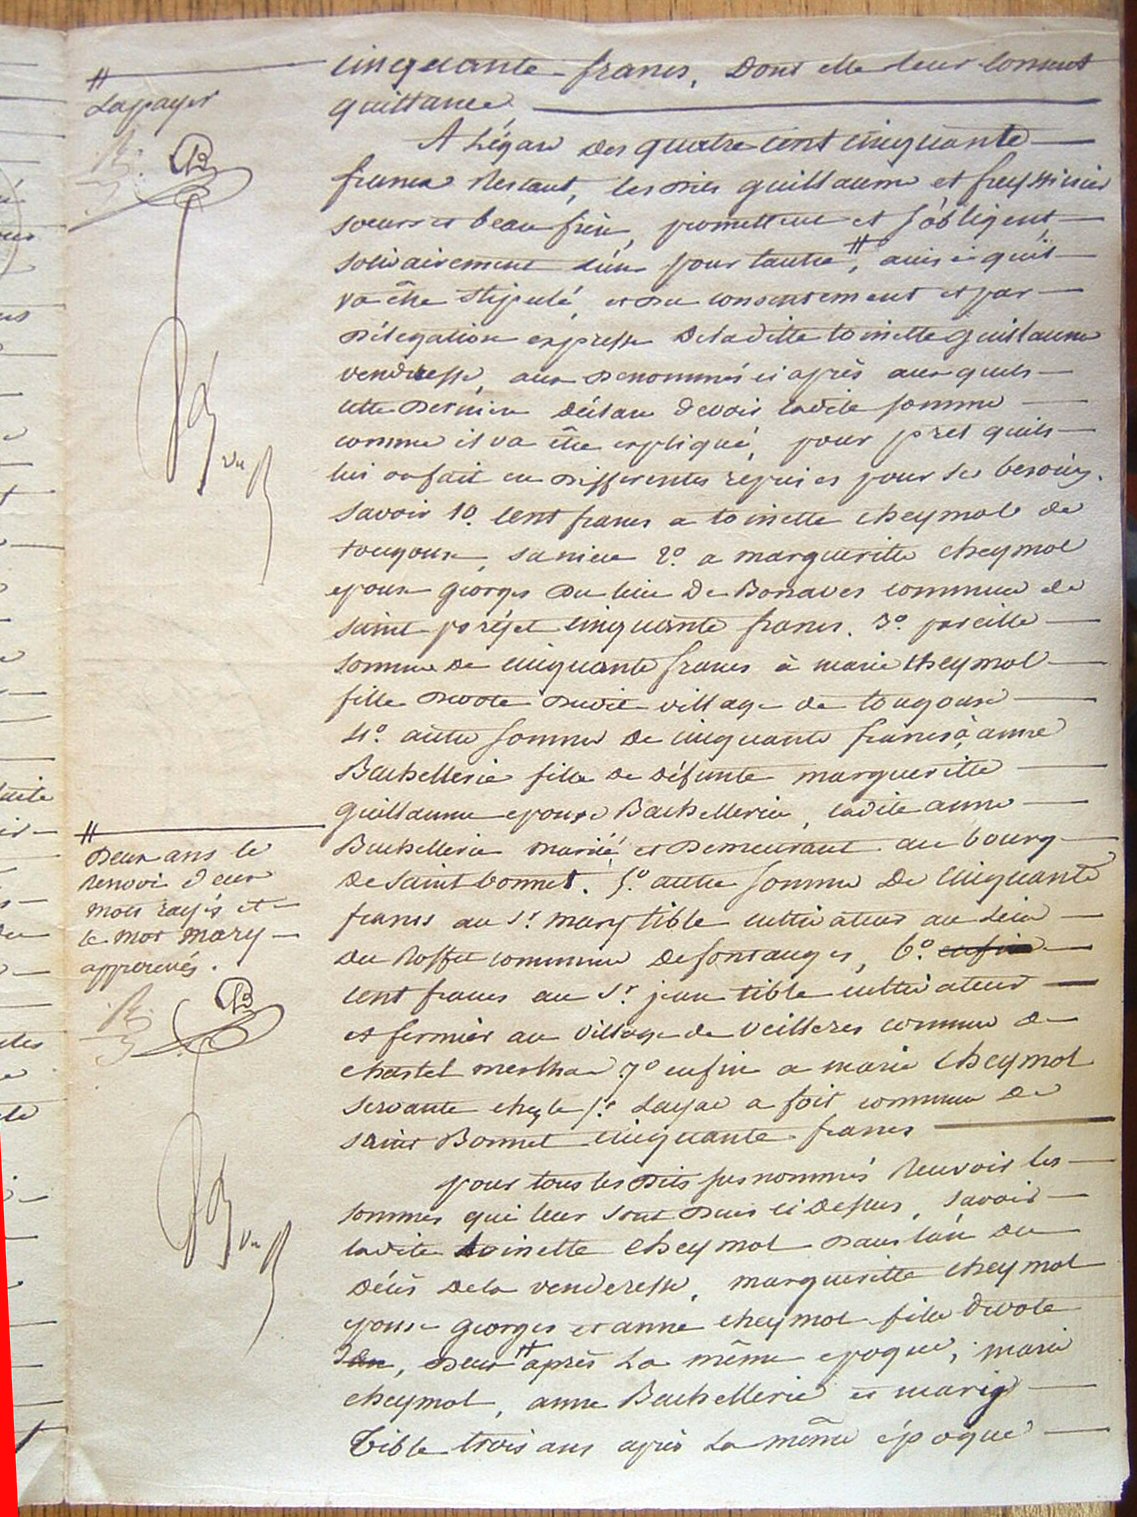 cinquante francs, dont elle leur consent
quittance
A l'égard des quatre cent cinquante
francs restant, les dits guillaume et freyssinier
soeur et beau frère, promettent et s'obligent,
solidairement l'un pour l'autre #, ainsi qu'il
va être stipulé, et du consentement et par
délégation expresse de la ditte toinette guillaume
venderesse, aux denommés ci après aux quels
cette dernière déclare devoir ladite somme
comme il va être expliqué, pour pret quils
lui on fait en differentes reprises pour ses besoins.
savoir 1o. cent francs a toinette cheymol de
tougouse, sa niece 2o. a margueritte cheymol
epouse georges du lieu de Bonaves commune de
saint projet cinquante francs. 3o. pareille
somme de cinquante francs à marie cheymol
fille devote dudit village de tougouse
4o. autre somme de cinquante francs à anne
Bachellerie fille de défunte margueritte
guillaume epouse Bachellerie, ladite anne
Bachellerie mariée et demeurant au bourg
de saint bonnet. 5o. autre somme de cinquante
francs au sr. mary tible cultivateur au lieu
du Roffet commune de fontanges, 6o. enfin
cent francs au sr. jean tible cultivateur
et fermier au village de Veillezes commune de
chastel merlhac 7o enfin a marie cheymol
servante chez le sr. Layac a foit commune de
saint Bonnet cinquante francs
pour tous les dits susnommés recevoir les
sommes qui leur sont dues ci dessus, savoir
ladite toinette cheymol dans l'an du
décès de la venderesse, margueritte cheymol
epouse georges et anne cheymol fille devote
dans, deux # après la même epoque, marie
cheymol, anne Bachellerie et mary
Tible trois ans après la même époque
#
La payer
#
Deux ans le
renvoi deux
mots rayés et
le mot mary
approuvés.